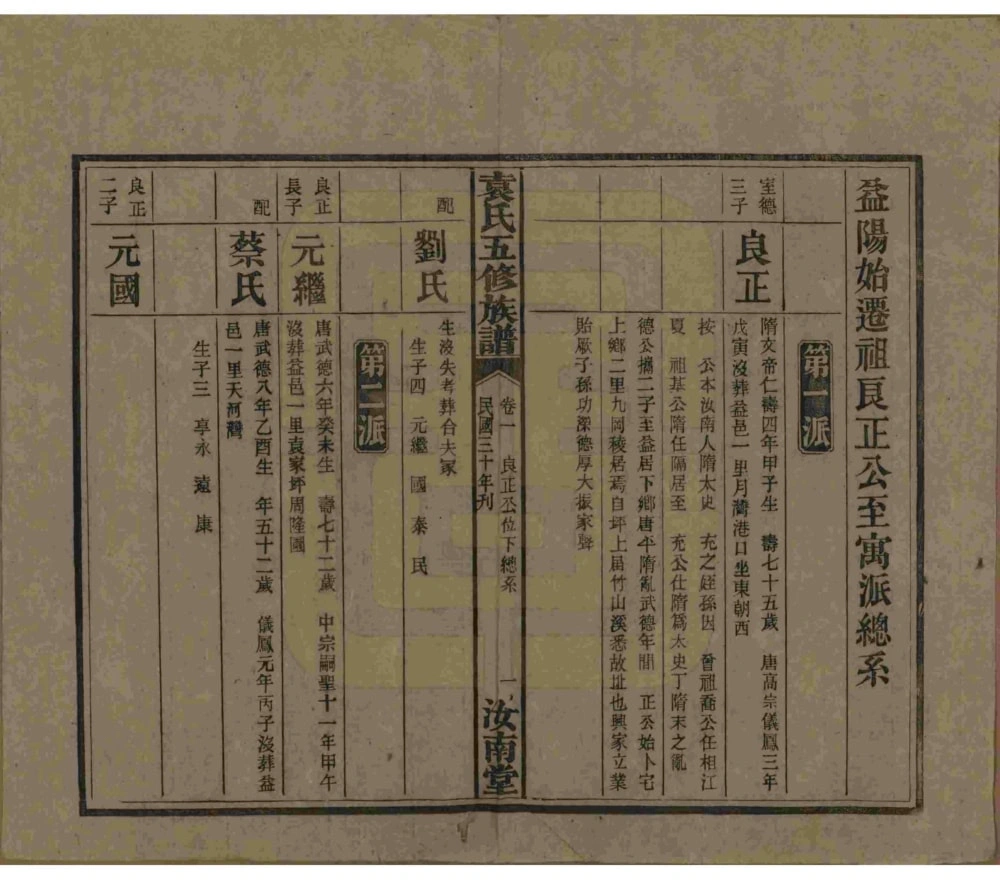 益陽始遷祖良正公至寓派總系
第一派
室德三子
良正
隋文帝仁壽四年甲子生 壽七十五歲 唐高宗儀鳳三年
戊寅沒葬益邑一里月灣港口坐東朝西
按 公本汝南人隋太史 充之姪孫因 晉祖喬公任相江
夏 祖基公隋任隔居至 充公仕隋為太史丁隋末之亂
德公攜二子至益居下鄉唐平隋亂武德年間 正公始卜宅
上鄉二里九岡稜居焉自坪上屆竹山溪悉故址也興家立業
貽厥子孫功深德厚大振家聲
袁氏五修族譜
卷一 良正公位下總系
民國三十年刊
一
汝南堂
配
劉氏
生沒失考葬合夫冢
生子四 元繼 國 泰 民
第二派
良正長子
元繼
唐武德六年癸未生 壽七十二歲 中宗嗣聖十一年甲午
沒葬益邑一里袁家坪周隆圖
配
蔡氏
唐武德八年乙酉生 年五十二歲 儀鳳元年丙子沒葬益
邑一里天河灣
生子三 享永 遠 康
良正二子
元國